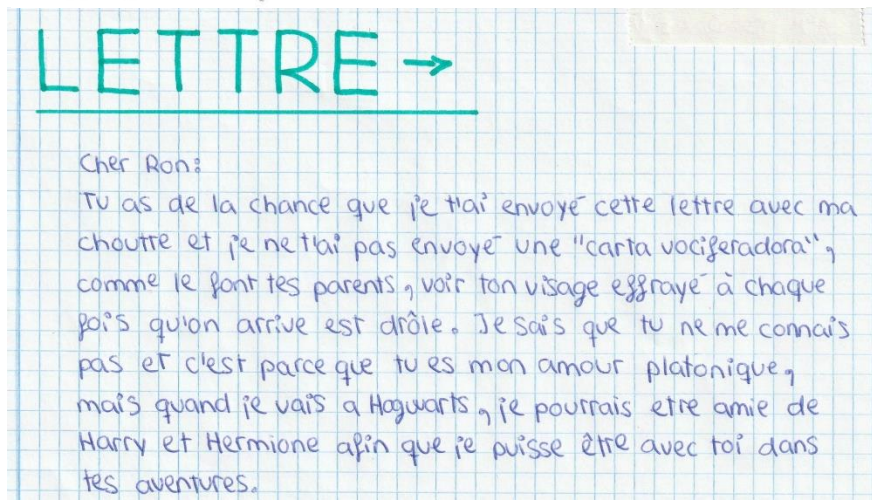 LETTRE →
Cher Ron:
Tu as de la chance que je t'ai envoyé cette lettre avec ma
choutte et je ne t'ai pas envoyé une "carta vociferadora",
comme le font tes parents, voir ton visage effrayé à chaque
fois qu'on arrive est drôle. Je sais que tu ne me connais
pas et c'est parce que tu es mon amour platonique,
mais quand je vais a Hogwarts, je pourrais etre amie de
Harry et Hermione afin que je puisse être avec toi dans
tes aventures.